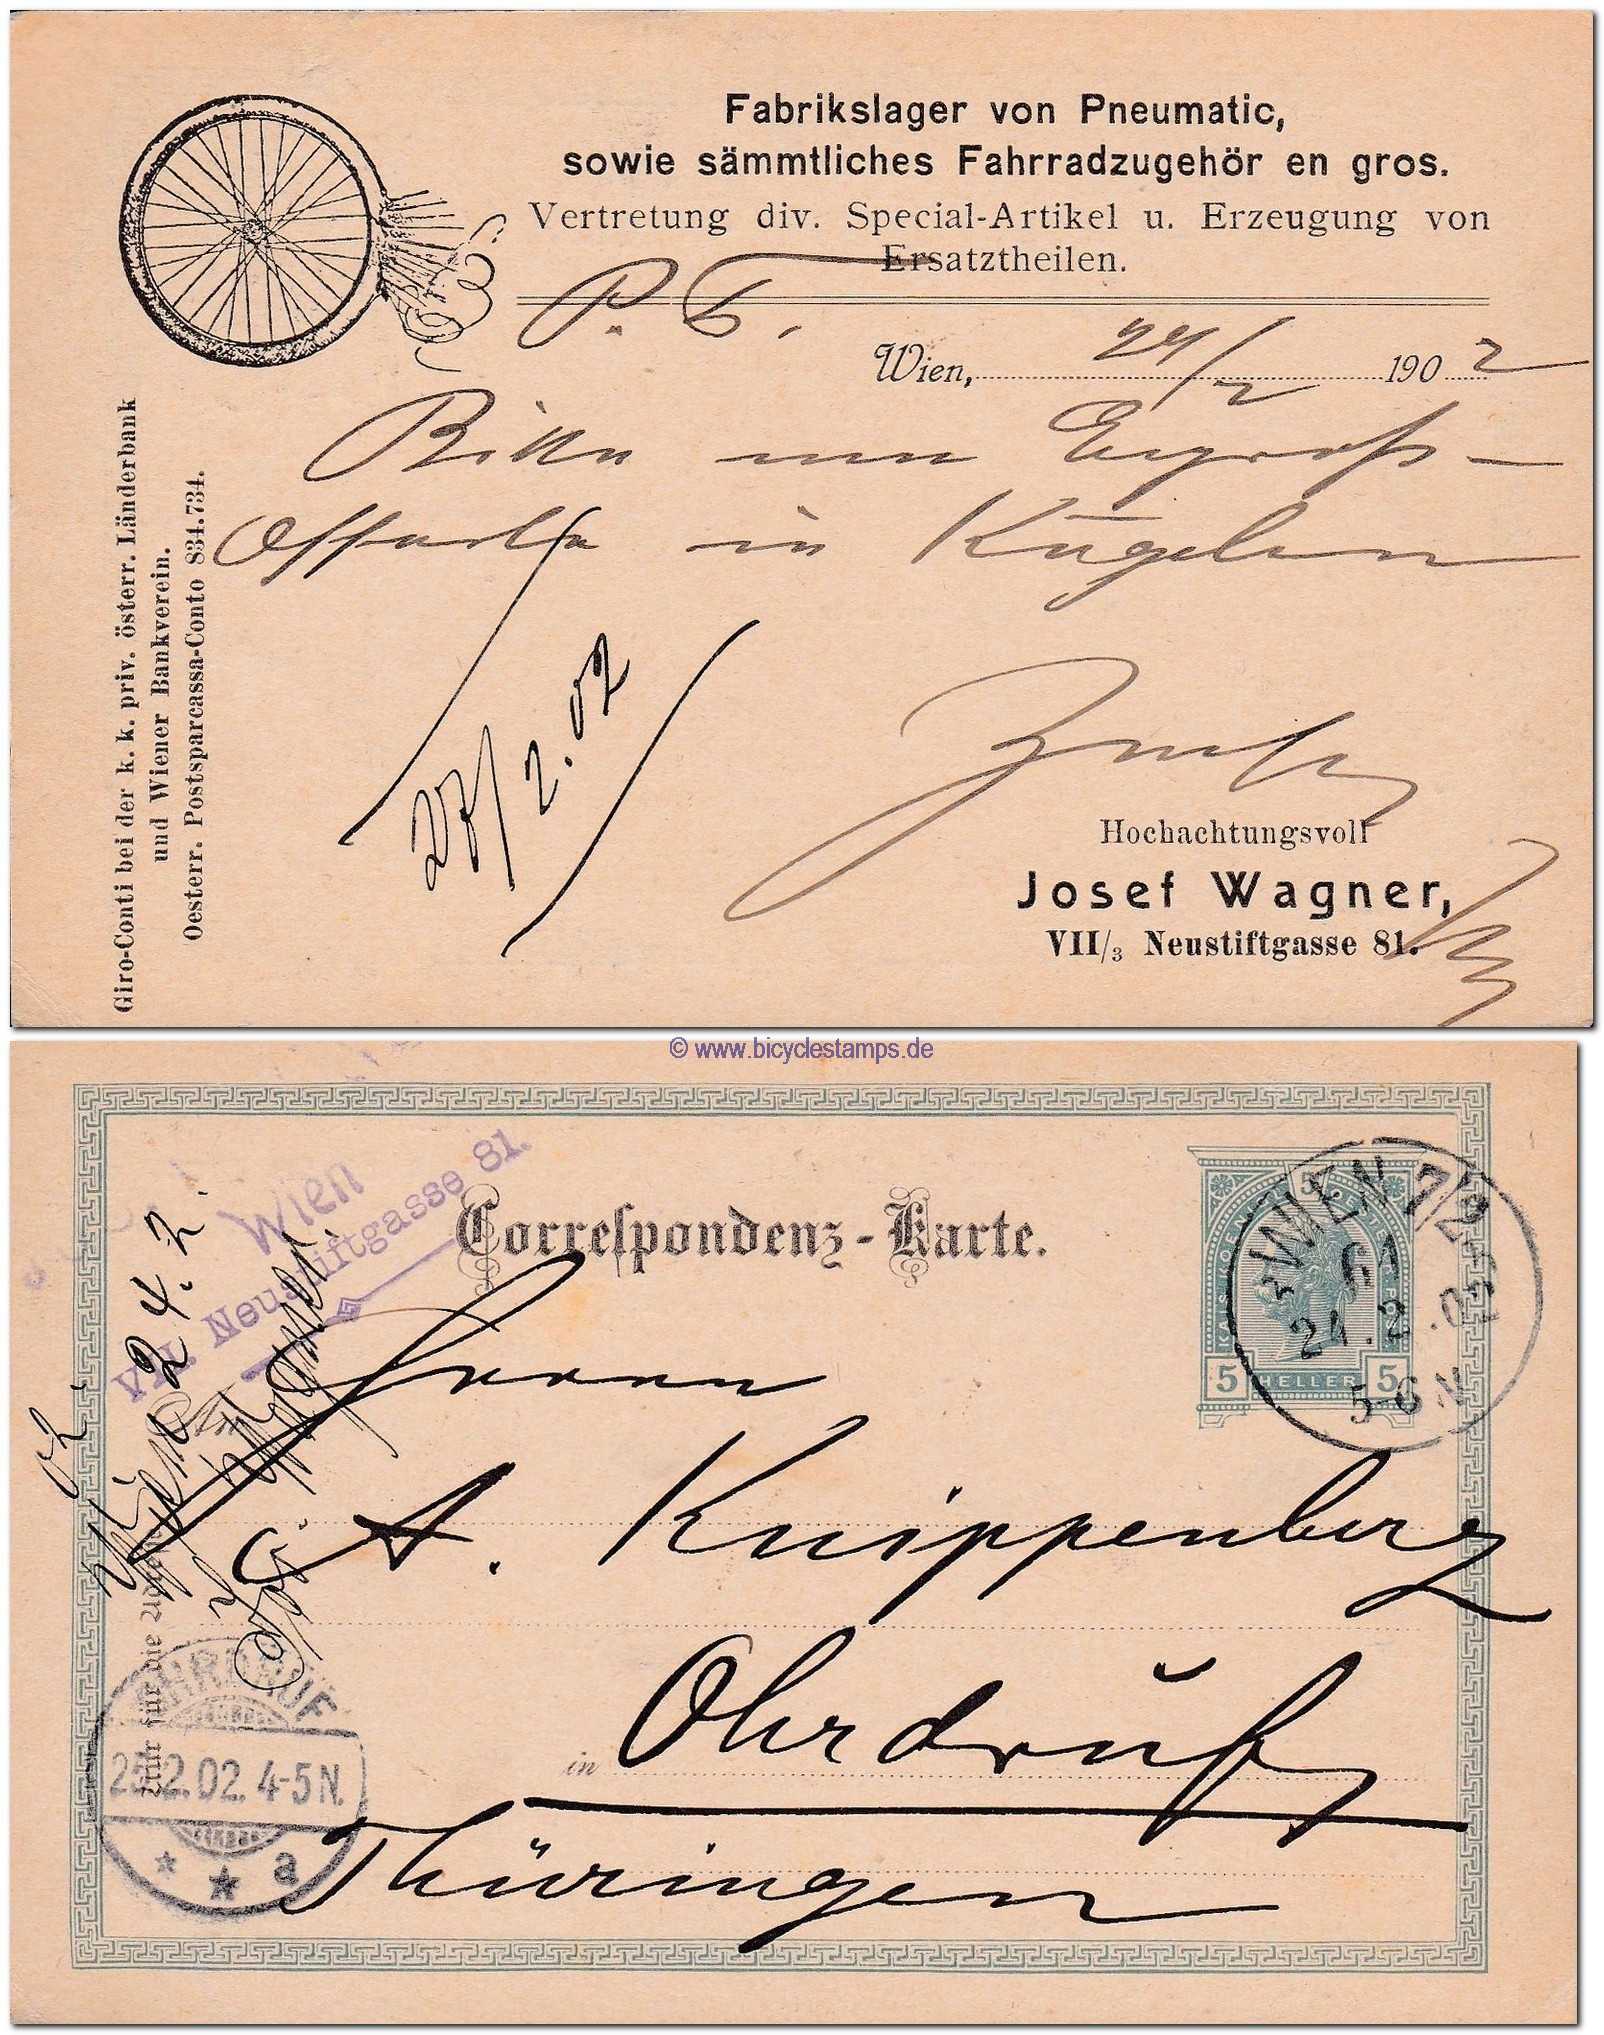 Fabrikslager von Pneumatic,
sowie sämmtliches Fahrradzugehör en gros.
Vertretung div. Special-Artikel u. Erzeugung von
Ersatztheilen.
P. T.
Wien, 24/2 1902
Bitte um Engros-
Offerte in Kugeln
27/2.02
Hochachtungsvoll
Josef Wagner,
VII/3 Neustiftgasse 81.
Giro-Conti bei der k. k. priv. österr. Länderbank
und Wiener Bankverein.
Oesterr. Postsparcassa-Conto 834.734.
© www.bicyclestamps.de
Wien
VII. Neustiftgasse 81.
Correspondenz-Karte.
WIEN 7/2
61
24.2.02
5-6 N
5 HELLER 5
An
Herrn
A. Knippenberg
in Ohrdruf
Thüringen
Wien 24.2.
02
Jos. Wagner
Nur für die Adresse
OHRDRUF
25.2.02. 4-5N.
* * a